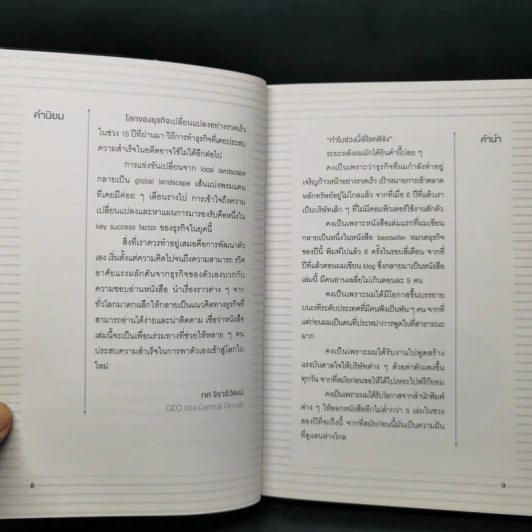 คำนิยม
โลกของธุรกิจเปลี่ยนแปลงอย่างรวดเร็ว
ในช่วง 15 ปีที่ผ่านมา วิธีการทำธุรกิจที่เคยประสบ
ความสำเร็จในอดีตอาจใช้ไม่ได้อีกต่อไป
การแข่งขันเปลี่ยนจาก local landscape
กลายเป็น global landscape เส้นแบ่งพรมแดน
ที่เคยมีค่อย ๆ เลือนรางไป การเข้าใจถึงความ
เปลี่ยนแปลงและหาแผนการมารองรับคือหนึ่งใน
key success factor ของธุรกิจในยุคนี้
สิ่งที่เราควรทำอยู่เสมอคือการพัฒนาตัว
เอง เริ่มตั้งแต่ความคิดไปจนถึงความสามารถ รวิศ
อาศัยแรงผลักดันจากธุรกิจของตัวเองบวกกับ
ความชอบอ่านหนังสือ นำเรื่องราวต่าง ๆ จาก
ทั่วโลกมาตกผลึกให้กลายเป็นแนวคิดทางธุรกิจที่
สามารถอ่านได้ง่ายและน่าติดตาม เชื่อว่าหนังสือ
เล่มนี้จะเป็นเพื่อนร่วมทางที่ช่วยให้หลาย ๆ คน
ประสบความสำเร็จในการพาตัวเองเข้าสู่โลกใบ
ใหม่
ทศ จิราธิวัฒน์
CEO ของ Central Group
8
คำนำ
"ทำไมช่วงนี้พี่โชคดีจัง"
ระยะหลังผมมักได้ยินคำนี้บ่อย ๆ
คงเป็นเพราะว่าธุรกิจที่ผมกำลังทำอยู่
เจริญก้าวหน้าอย่างรวดเร็ว เป้าหมายการเข้าตลาด
หลักทรัพย์อยู่ไม่ไกลแล้ว จากที่เมื่อ 6 ปีที่แล้วเรา
เป็นบริษัทเล็ก ๆ ที่ไม่มีคอมพิวเตอร์ใช้งานสักตัว
คงเป็นเพราะหนังสือเล่มแรกที่ผมเขียน
กลายเป็นหนึ่งในหนังสือ bestseller หมวดธุรกิจ
ของปีนี้ พิมพ์ไปแล้ว 6 ครั้งในรอบสี่เดือน จากที่
ปีที่แล้วตอนผมเขียน blog ซึ่งกลายมาเป็นหนังสือ
เล่มนี้ มีคนอ่านเฉลี่ยไม่เกินตอนละ 5 คน
คงเป็นเพราะผมได้มีโอกาสขึ้นบรรยาย
บนเวทีระดับประเทศที่มีคนฟังเป็นพัน ๆ คน จากที่
แต่ก่อนผมเป็นคนที่ประหม่าการพูดในที่สาธารณะ
มาก
คงเป็นเพราะผมได้รับงานไปพูดสร้าง
แรงบันดาลใจให้บริษัทต่าง ๆ ด้วยค่าตัวแพงขึ้น
ทุกวัน จากที่สมัยก่อนขอให้ได้ไปเหอะไปฟรีก็ยอม
คงเป็นเพราะผมได้รับโอกาสจากสำนักพิมพ์
ต่าง ๆ ให้ออกหนังสืออีกไม่ต่ำกว่า 5 เล่มในช่วง
สองปีที่จะถึงนี้ จากที่สมัยก่อนนั้นมันเป็นความฝัน
ที่ดูแสนห่างไกล
9